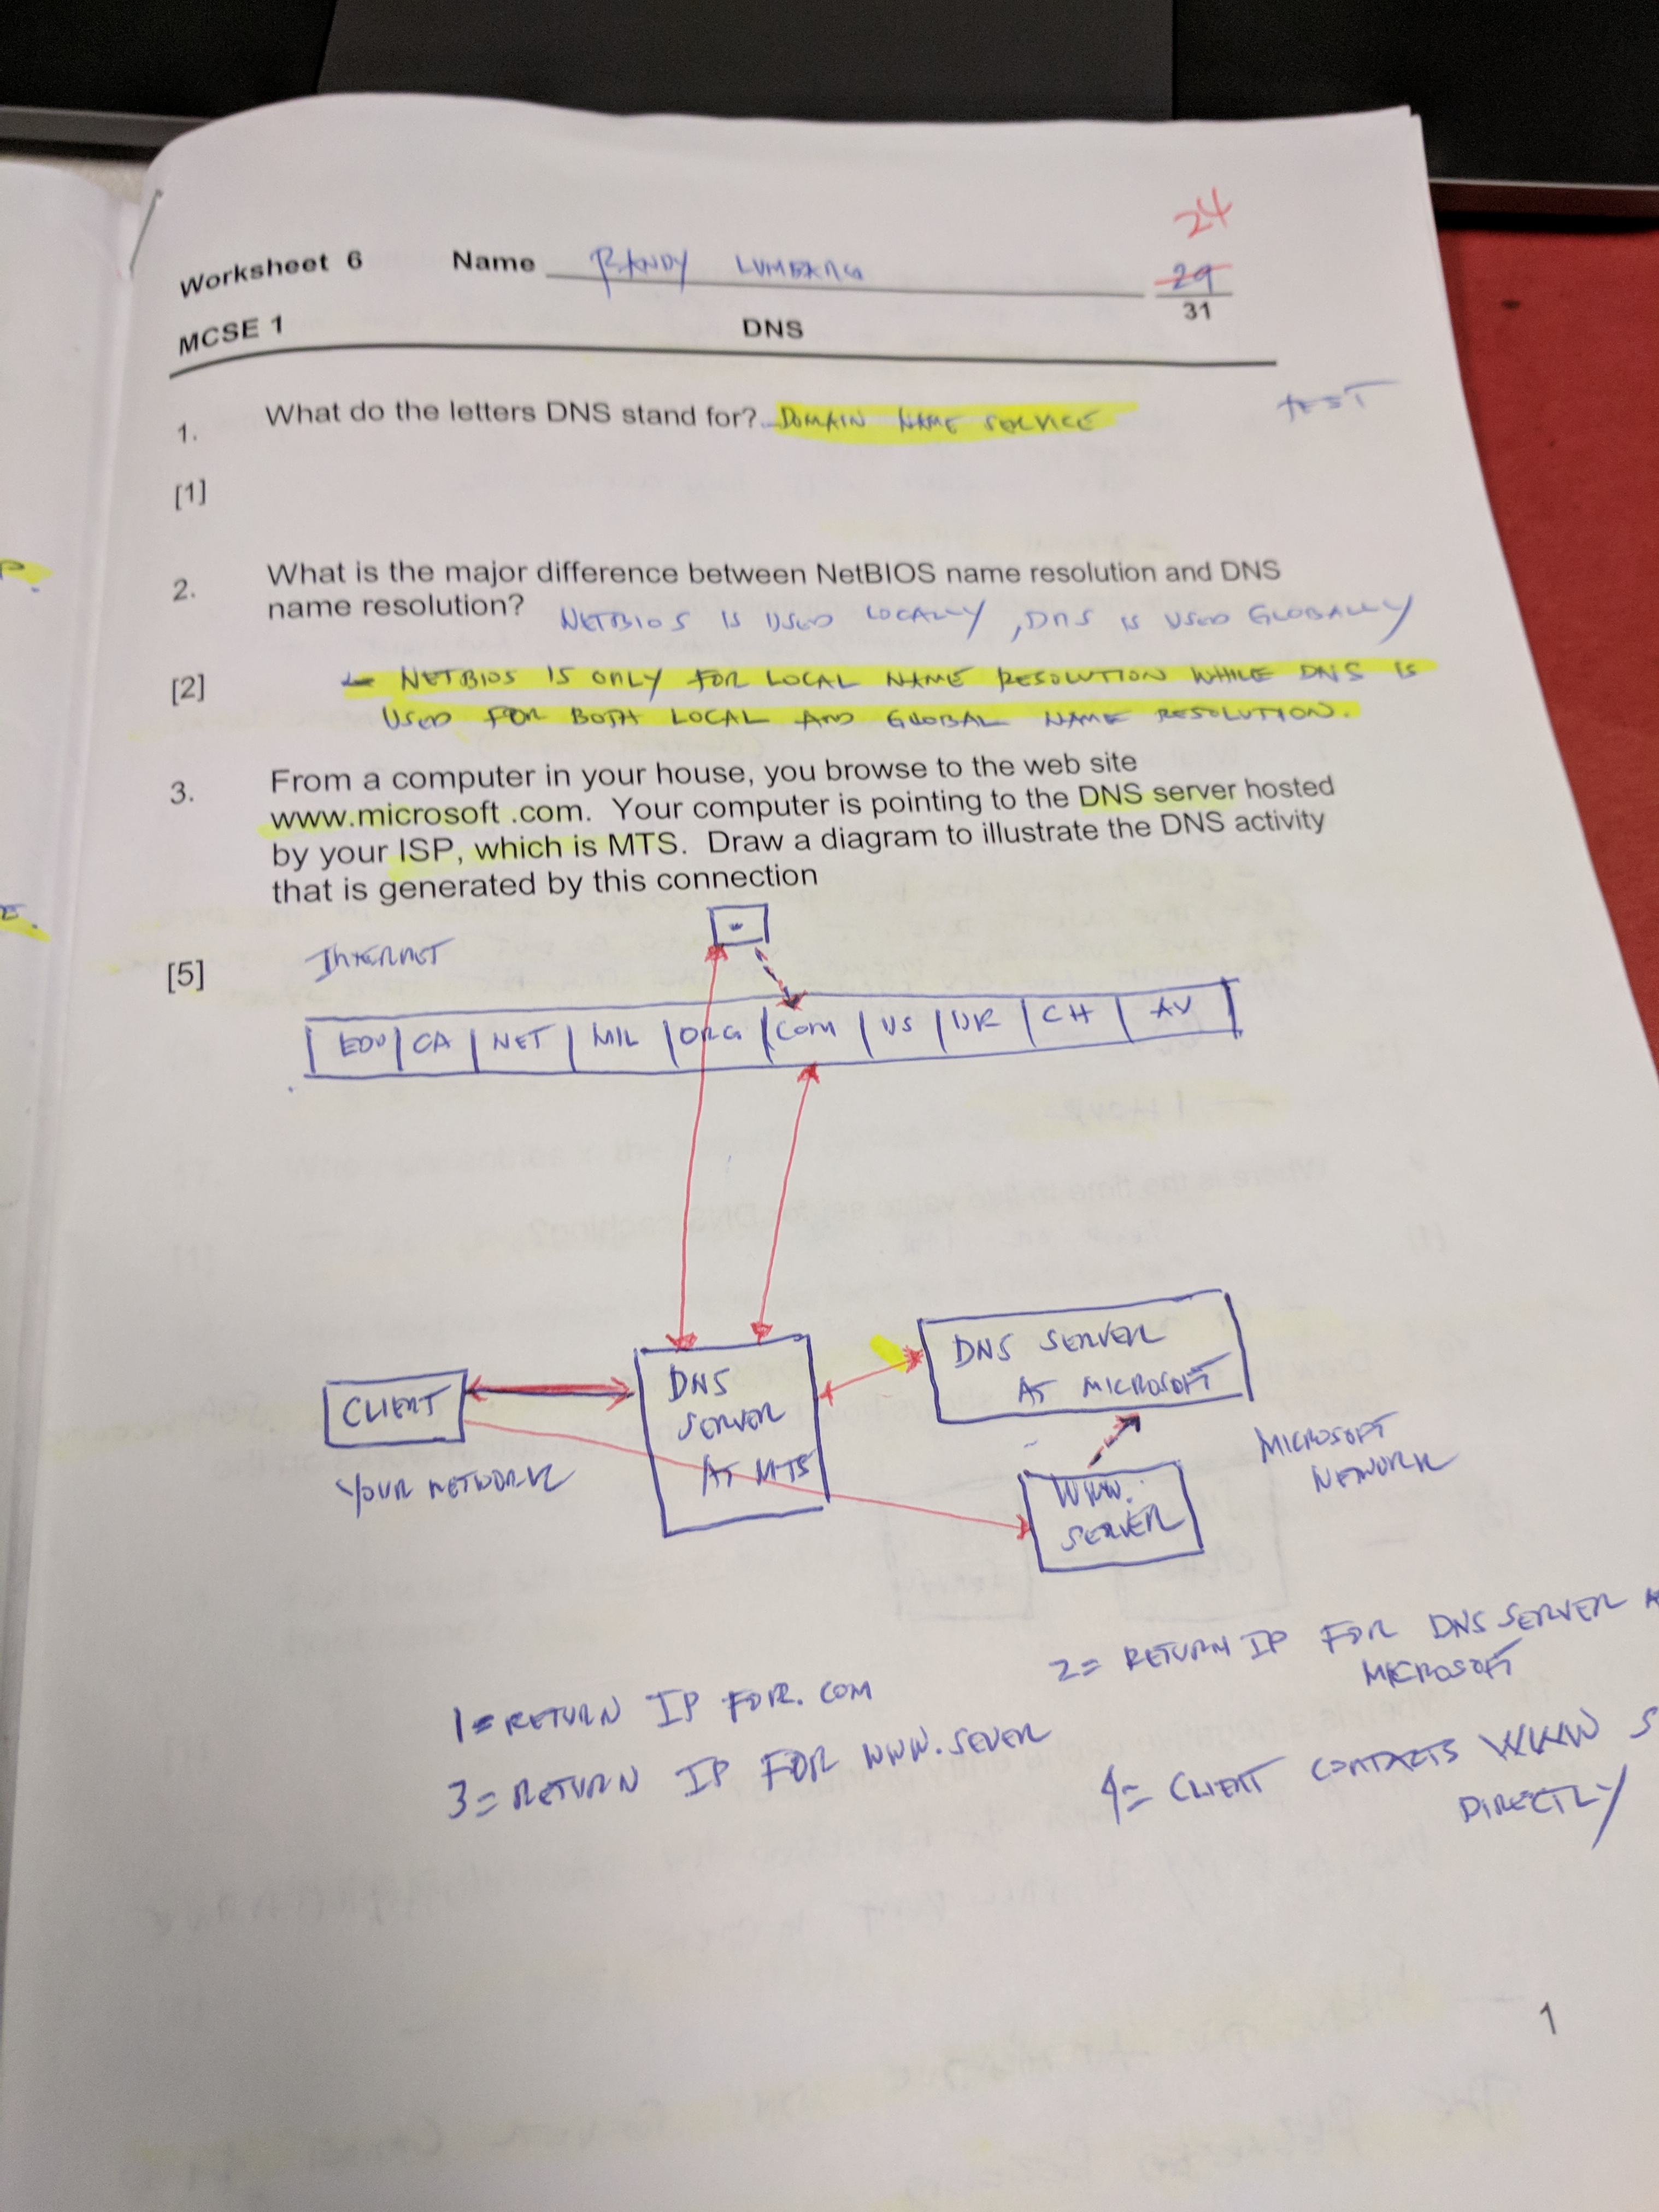 24
Worksheet 6 Name RANDY LUMBANG 29
31
MCSE 1 DNS
TEST
1. What do the letters DNS stand for? DOMAIN NAME SERVICE
[1]
2. What is the major difference between NetBIOS name resolution and DNS
name resolution? NETBIOS IS USED LOCALLY, DNS IS USED GLOBALLY
[2] - NETBIOS IS ONLY FOR LOCAL NAME RESOLUTION WHILE DNS IS
USED FOR BOTH LOCAL AND GLOBAL NAME RESOLUTION.
3. From a computer in your house, you browse to the web site
www.microsoft .com. Your computer is pointing to the DNS server hosted
by your ISP, which is MTS. Draw a diagram to illustrate the DNS activity
that is generated by this connection
[5] INTERNET
EDU CA NET MIL ORG COM US UK CH AV
DNS SERVER
AT MICROSOFT
CLIENT
DNS
SERVER
AT MTS
YOUR NETWORK
WWW.
SERVER
MICROSOFT
NETWORK
1= RETURN IP FOR. COM
2= RETURN IP FOR DNS SERVER
MICROSOFT
3= RETURN IP FOR WWW. SEVER
4= CLIENT CONTACTS WWW S
DIRECTLY
1